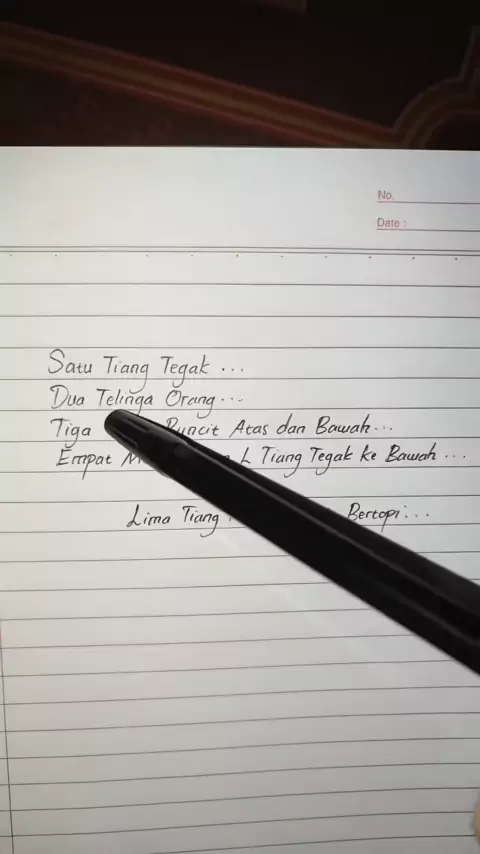 No.
Date :
Satu Tiang Tegak ...
Dua Telinga Orang ...
Tiga Buncit Atas dan Bawah ...
Empat L Tiang Tegak ke Bawah ...
Lima Tiang Bertopi ...